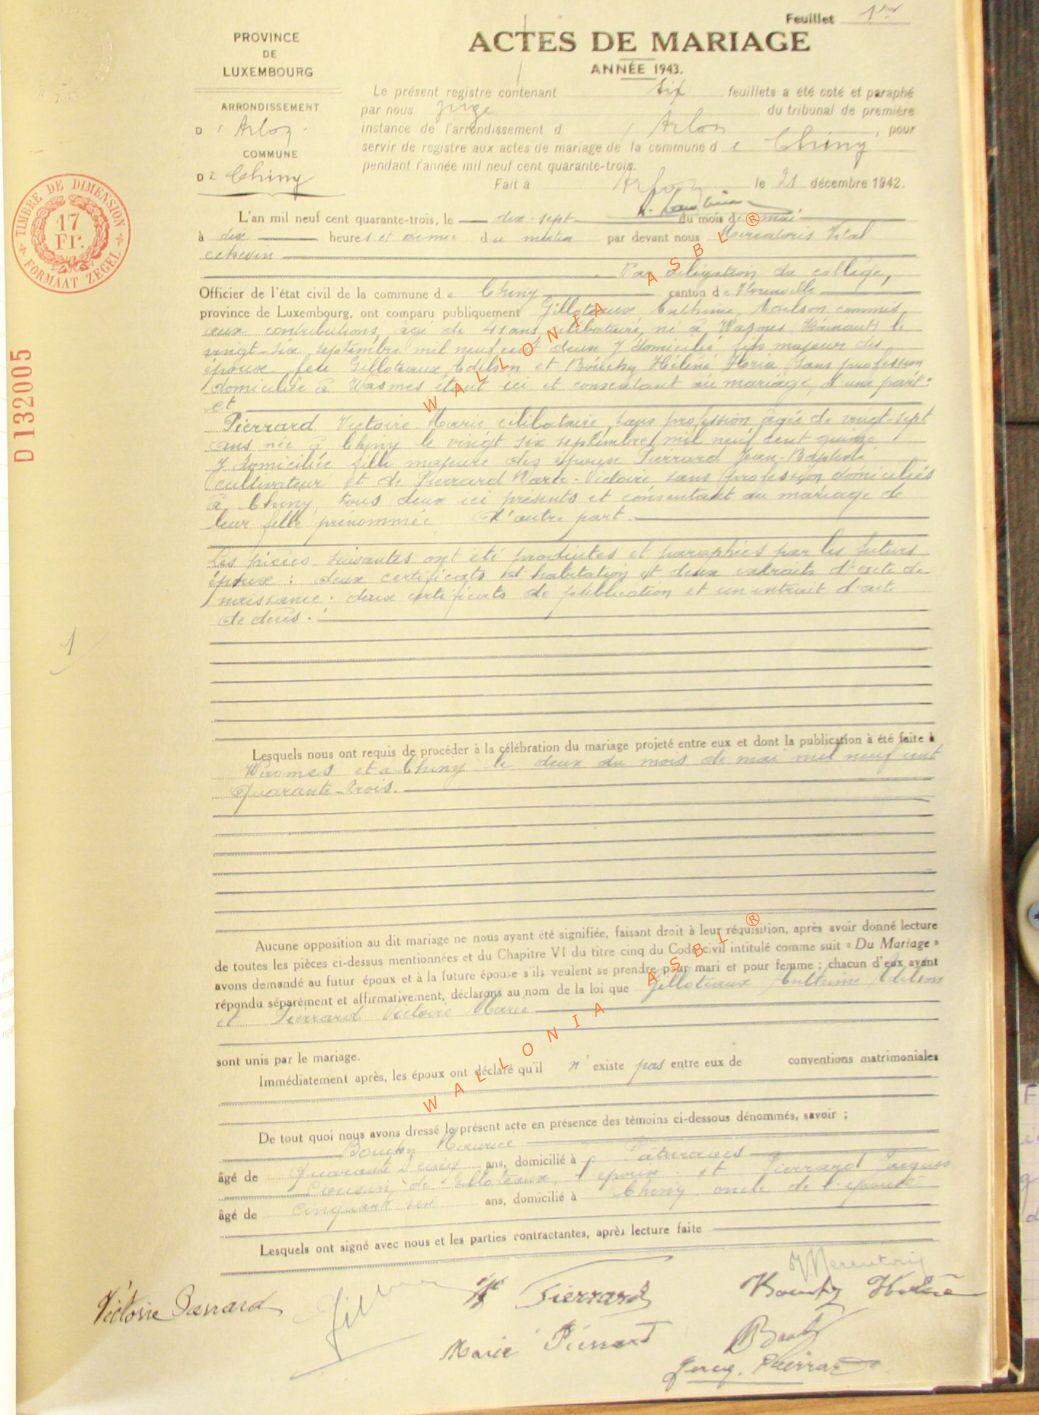 Feuillet 1er
PROVINCE
DE
LUXEMBOURG
ARRONDISSEMENT
D' Arlon
COMMUNE
DE Chiny
TIMBRE DE DIMENSION
17
Fr.
FORMAAT ZEGEL
D 132005
ACTES DE MARIAGE
ANNÉE 1943.
Le présent registre contenant six feuillets a été coté et paraphé
par nous juge du tribunal de première
instance de l'arrondissement d' Arlon, pour
servir de registre aux actes de mariage de la commune de Chiny
pendant l'année mil neuf cent quarante-trois.
Fait à Arlon le 21 décembre 1942.
L'an mil neuf cent quarante-trois, le dix-sept du mois de mai
à dix heures et demie du matin par devant nous Vital
échevin
Par délégation du collège,
Officier de l'état civil de la commune de Chiny canton de Florenville
province de Luxembourg, ont comparu publiquement Gilloteaux Anthime, commis
aux contributions, âgé de 41 ans, célibataire, né à Wasmes (Hainaut) le
vingt-six septembre mil neuf cent deux y domicilié fils majeur des
époux feu Gilloteaux, et Hélène sans profession
domiciliée à Wasmes étant ici et consentant au mariage, d'une part.
et
Pierrard Victoire Marie célibataire, sans profession âgée de vingt-sept
ans née à Chiny le vingt six septembre mil neuf cent quinze
y domiciliée fille majeure des époux Pierrard Jean-Baptiste
cultivateur et de Pierrard Marie-Victoire sans profession domiciliés
à Chiny, tous deux ici présents et consentant au mariage de
leur fille prénommée d'autre part.
Les pièces suivantes ont été produites et paraphées par les futurs
époux : deux certificats d'habitation et deux extraits d'acte de
naissance. deux certificats de publication et un extrait d'acte
de décès.
1
Lesquels nous ont requis de procéder à la célébration du mariage projeté entre eux et dont la publication a été faite à
Wasmes et à Chiny le deux du mois de mai mil neuf cent
quarante-trois.
Aucune opposition au dit mariage ne nous ayant été signifiée, faisant droit à leur réquisition, après avoir donné lecture
de toutes les pièces ci-dessus mentionnées et du Chapitre VI du titre cinq du Code civil intitulé comme suit « Du Mariage »
avons demandé au futur époux et à la future épouse s'ils veulent se prendre pour mari et pour femme ; chacun d'eux ayant
répondu séparément et affirmativement, déclarons au nom de la loi que Gilloteaux Anthime
et Pierrard Victoire Marie
sont unis par le mariage.
Immédiatement après, les époux ont déclaré qu'il n'existe pas entre eux de conventions matrimoniales
De tout quoi nous avons dressé le présent acte en présence des témoins ci-dessous dénommés, savoir ;
Maurice
âgé de quarante ans, domicilié à Pâturages
cousin de Gilloteaux, l'époux et Pierrard Jacques
âgé de cinquante six ans, domicilié à Chiny oncle de l'épouse
Lesquels ont signé avec nous et les parties contractantes, après lecture faite
Victoire Pierrard
Pierrard
Marie Pierrard
Jacq. Pierrard
WALLONIA ASBL ®
WALLONIA ASBL ®